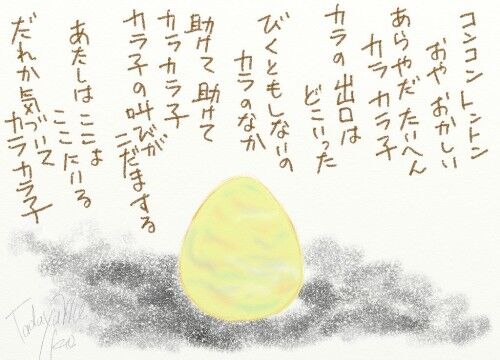 コンコン トントン
おや おかしい
あらやだ たいへん
カラカラ子
カラの出口は
どこいった
びくともしないの
カラのなか
助けて 助けて
カラカラ子
カラ子の叫びが
こだまする
あたしは ここよ
ここにいる
だれか気づいて
カラカラ子